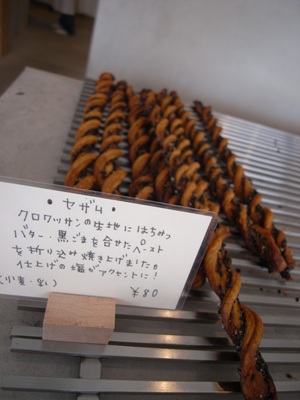 ・セザム・
クロワッサンの生地にはちみつ
バター・黒ごまを合せたペースト
を折り込み焼き上げました。
仕上げの塩がアクセントに!
(小麦・

¥80